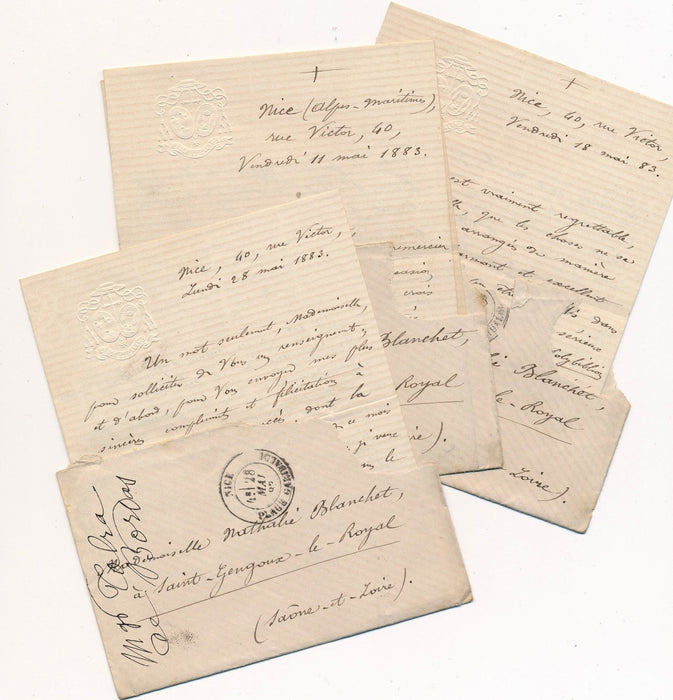 +
Nice (Alpes-Maritimes),
rue Victor, 40,
Vendredi 11 mai 1883.
remercier
crois
+
Nice, 40, rue Victor,
Vendredi 18 mai 83.
est vraiment regrettable,
que les choses ne se
arrangés de manière
et excellent
dans
sérieuse
Polybiblion
Nice, 40, rue Victor,
Lundi 28 mai 1883.
Un mot seulement, Mademoiselle,
pour solliciter de Vous un renseignement,
et d'abord, pour Vous envoyer mes plus
sincères compliments et félicitations à
dont la
ce mois
je veux
le
Blanchet,
Royal
Blanchet,
le-Royal
Loire).
NICE
28
MAI
PLACE GARIBALDI
Mademoiselle Nathalie Blanchet,
à Saint-Gengoux-le-Royal
(Saône-et-Loire).
Mgr
de